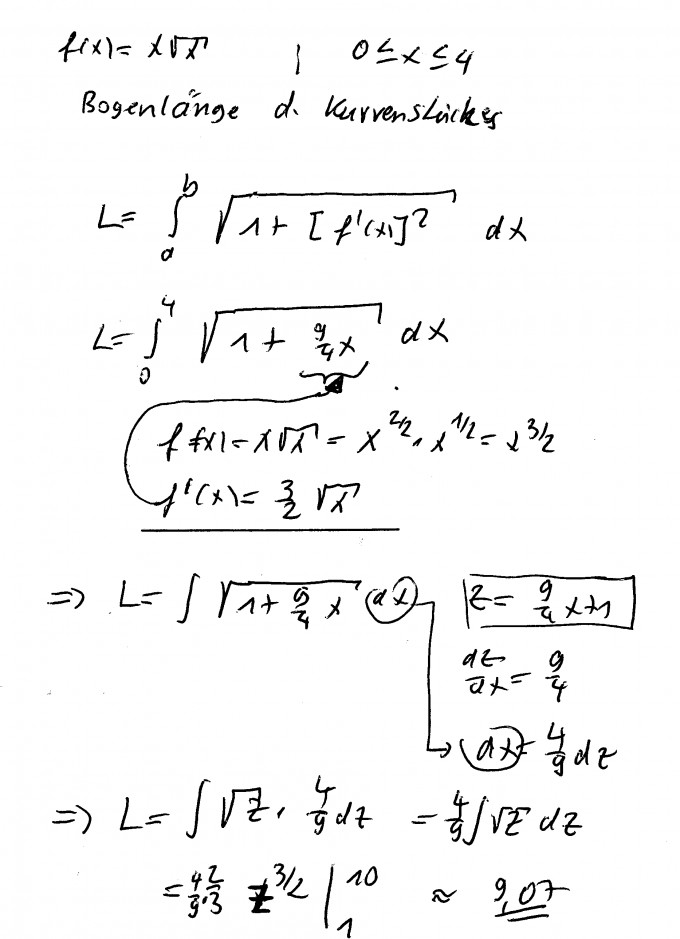 f(x) = x√x | 0 ≤ x ≤ 4
Bogenlänge d. Kurvenstückes
L = ∫_a^b √(1 + [f'(x)]²) dx
L = ∫_0^4 √(1 + 9/4 x) dx
f f(x) = x√x = x^(2/2) · x^(1/2) = x^(3/2)
f'(x) = 3/2 √x
=> L = ∫ √(1 + 9/4 x) dx z = 9/4 x + 1
dz/dx = 9/4
dx = 4/9 dz
=> L = ∫ √z · 4/9 dz = 4/9 ∫ √z dz
= 4/9 · 2/3 z^(3/2) |_1^10 ≈ 9,07